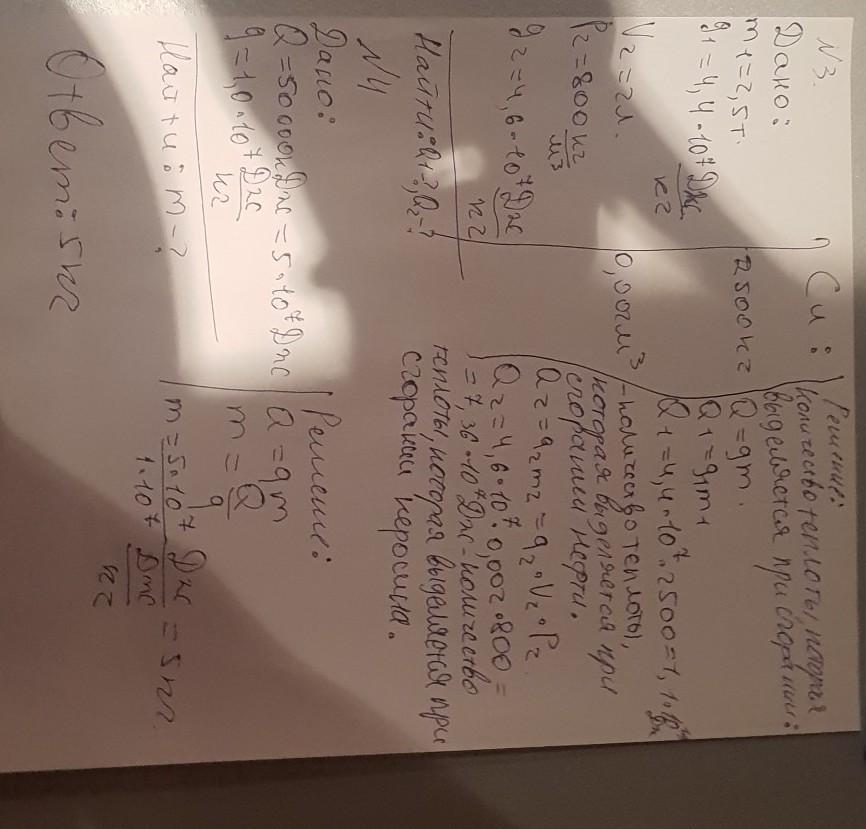 N3.
Дано:
m1=2,5т.
q1=4,4·10⁷ Дж/кг
V2=2л.
P2=800 кг/м³
q2=4,6·10⁷ Дж/кг
Найти: Q1-?, Q2-?
Си:
2500кг
0,002м³
Решение:
Количество теплоты, которая
выделяется при сгорании:
Q=qm.
Q1=q1m1
Q1=4,4·10⁷·2500=1,1·10¹¹ Дж
-количество теплоты,
которая выделяется при
сгорании нефти.
Q2=q2m2=q2·V2·P2.
Q2=4,6·10⁷·0,002·800=
=7,36·10⁷Дж-количество
теплоты, которая выделяется при
сгорании керосина.
N4
Дано:
Q=50000кДж=5·10⁷Дж
q=1,0·10⁷ Дж/кг
Найти: m-?
Решение:
Q=qm
m=Q/q
m=5·10⁷ Дж / 1·10⁷ Дж/кг =5кг.
Ответ: 5кг